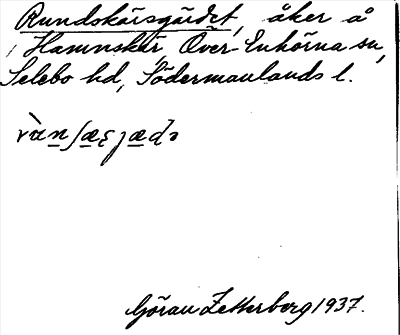 Rundskärsgärdet, åker å
Hamnskär Över-Enhörna sn,
Selebo hd, Södermanlands l.
Göran Zetterberg 1937.